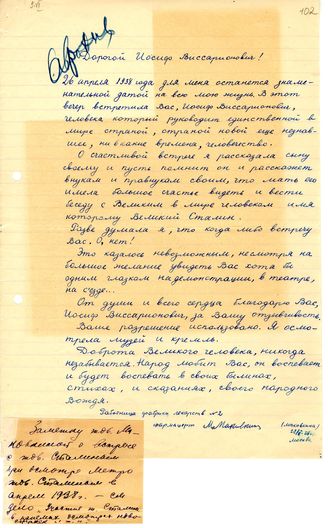 102
Архив
Дорогой Иосиф Виссарионович!
26 апреля 1938 года для меня останется знаме-
нательной датой на всю мою жизнь. В этот
вечер встретила Вас, Иосиф Виссарионович,
человека который руководит единственной в
мире страной, страной новой еще неднав-
шее, ни в какие времена, человечество.
О счастливой встрече я рассказала сыну
своему и пусть помнит он и расскажет
внукам и правнукам своим, что мать его
имела большое счастье видеть и вести
беседу с Великим в мире человеком имя
которому Великий Сталин.
Разве думала я, что когда либо встречу
Вас. О, нет!
Это казалось невозможным, несмотря на
большое желание увидеть Вас хотя бы
одним глазком на демонстрации, в театре,
на с'езде...
От души и всего сердца благодарю Вас,
Иосиф Виссарионович, за Вашу отзывчивость.
Ваше разрешение использовано. Я осмо-
трела музей и кремль.
Доброта Великого человека, никогда
незабывается. Народ любит Вас, он воспевает
и будет воспевать в своих былинах,
стихах, и сказаниях, своего народного
Вождя.
Работница фабрики лекарств №2
фармацевт
Москва
Заметку тов. Ма-
о встрече
с тов. Сталиным
при осмотре метро
тов. Сталиным в
апреле 1938 г. — см
дело „Участие т. Сталина